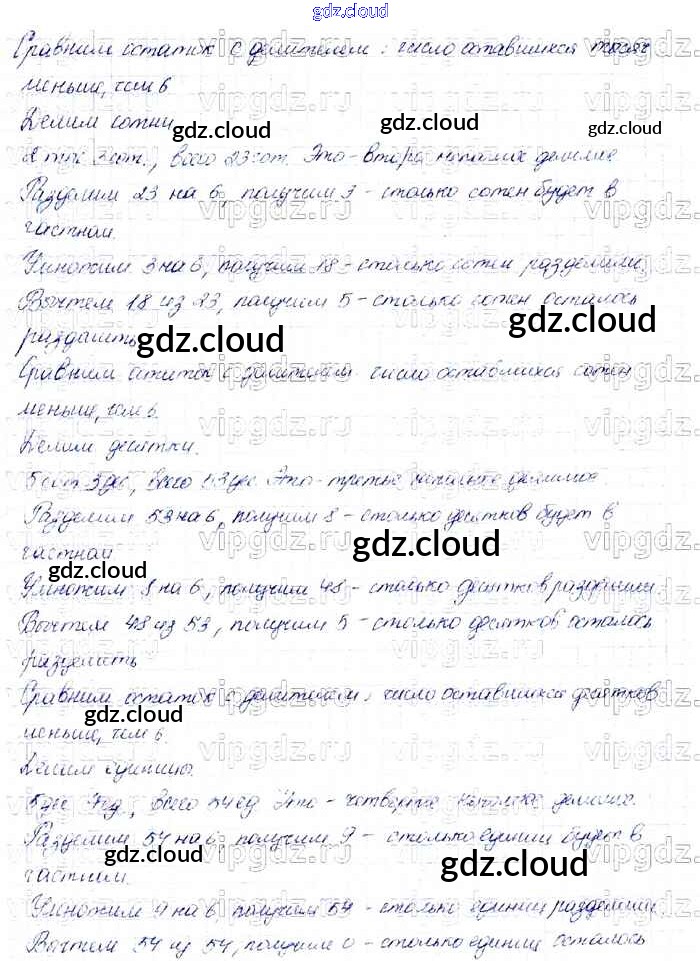 gdz.cloud
Сравним остаток с делителем: число оставшихся тысяч
меньше, чем 6
Делим сотни
gdz.cloud gdz.cloud gdz.cloud
2 тыс 3 сот., всего 23 сот. Это - второе неполное делимое
Разделим 23 на 6, получим 3 - столько сотен будет в
частном.
Умножим 3 на 6, получим 18 - столько сотен разделили.
Вычтем 18 из 23, получим 5 - столько сотен осталось
gdz.cloud
разделить
gdz.cloud
Сравним остаток с делителем число оставшихся сотен
меньше, чем 6.
Делим десятки.
5 сот 3 дес, всего 53 дес Это - третье неполное делимое
Разделим 53 на 6, получим 8 - столько десятков будет в
частном
gdz.cloud
gdz.cloud
Умножим 8 на 6, получим 48 - столько десятков разделили
Вычтем 48 из 53, получим 5 - столько десятков осталось
разделить
Сравним остаток с делителем: число оставшихся десятков
gdz.cloud
меньше, чем 6.
Делим единицы.
5 дес 4 ед, всего 54 ед Это - четвертое неполное делимое.
Разделим 54 на 6, получим 9 - столько единиц будет в
gdz.cloud gdz.cloud
частном.
Умножим 9 на 6, получим 54 - столько единиц разделили
Вычтем 54 из 54, получим 0 - столько единиц осталось